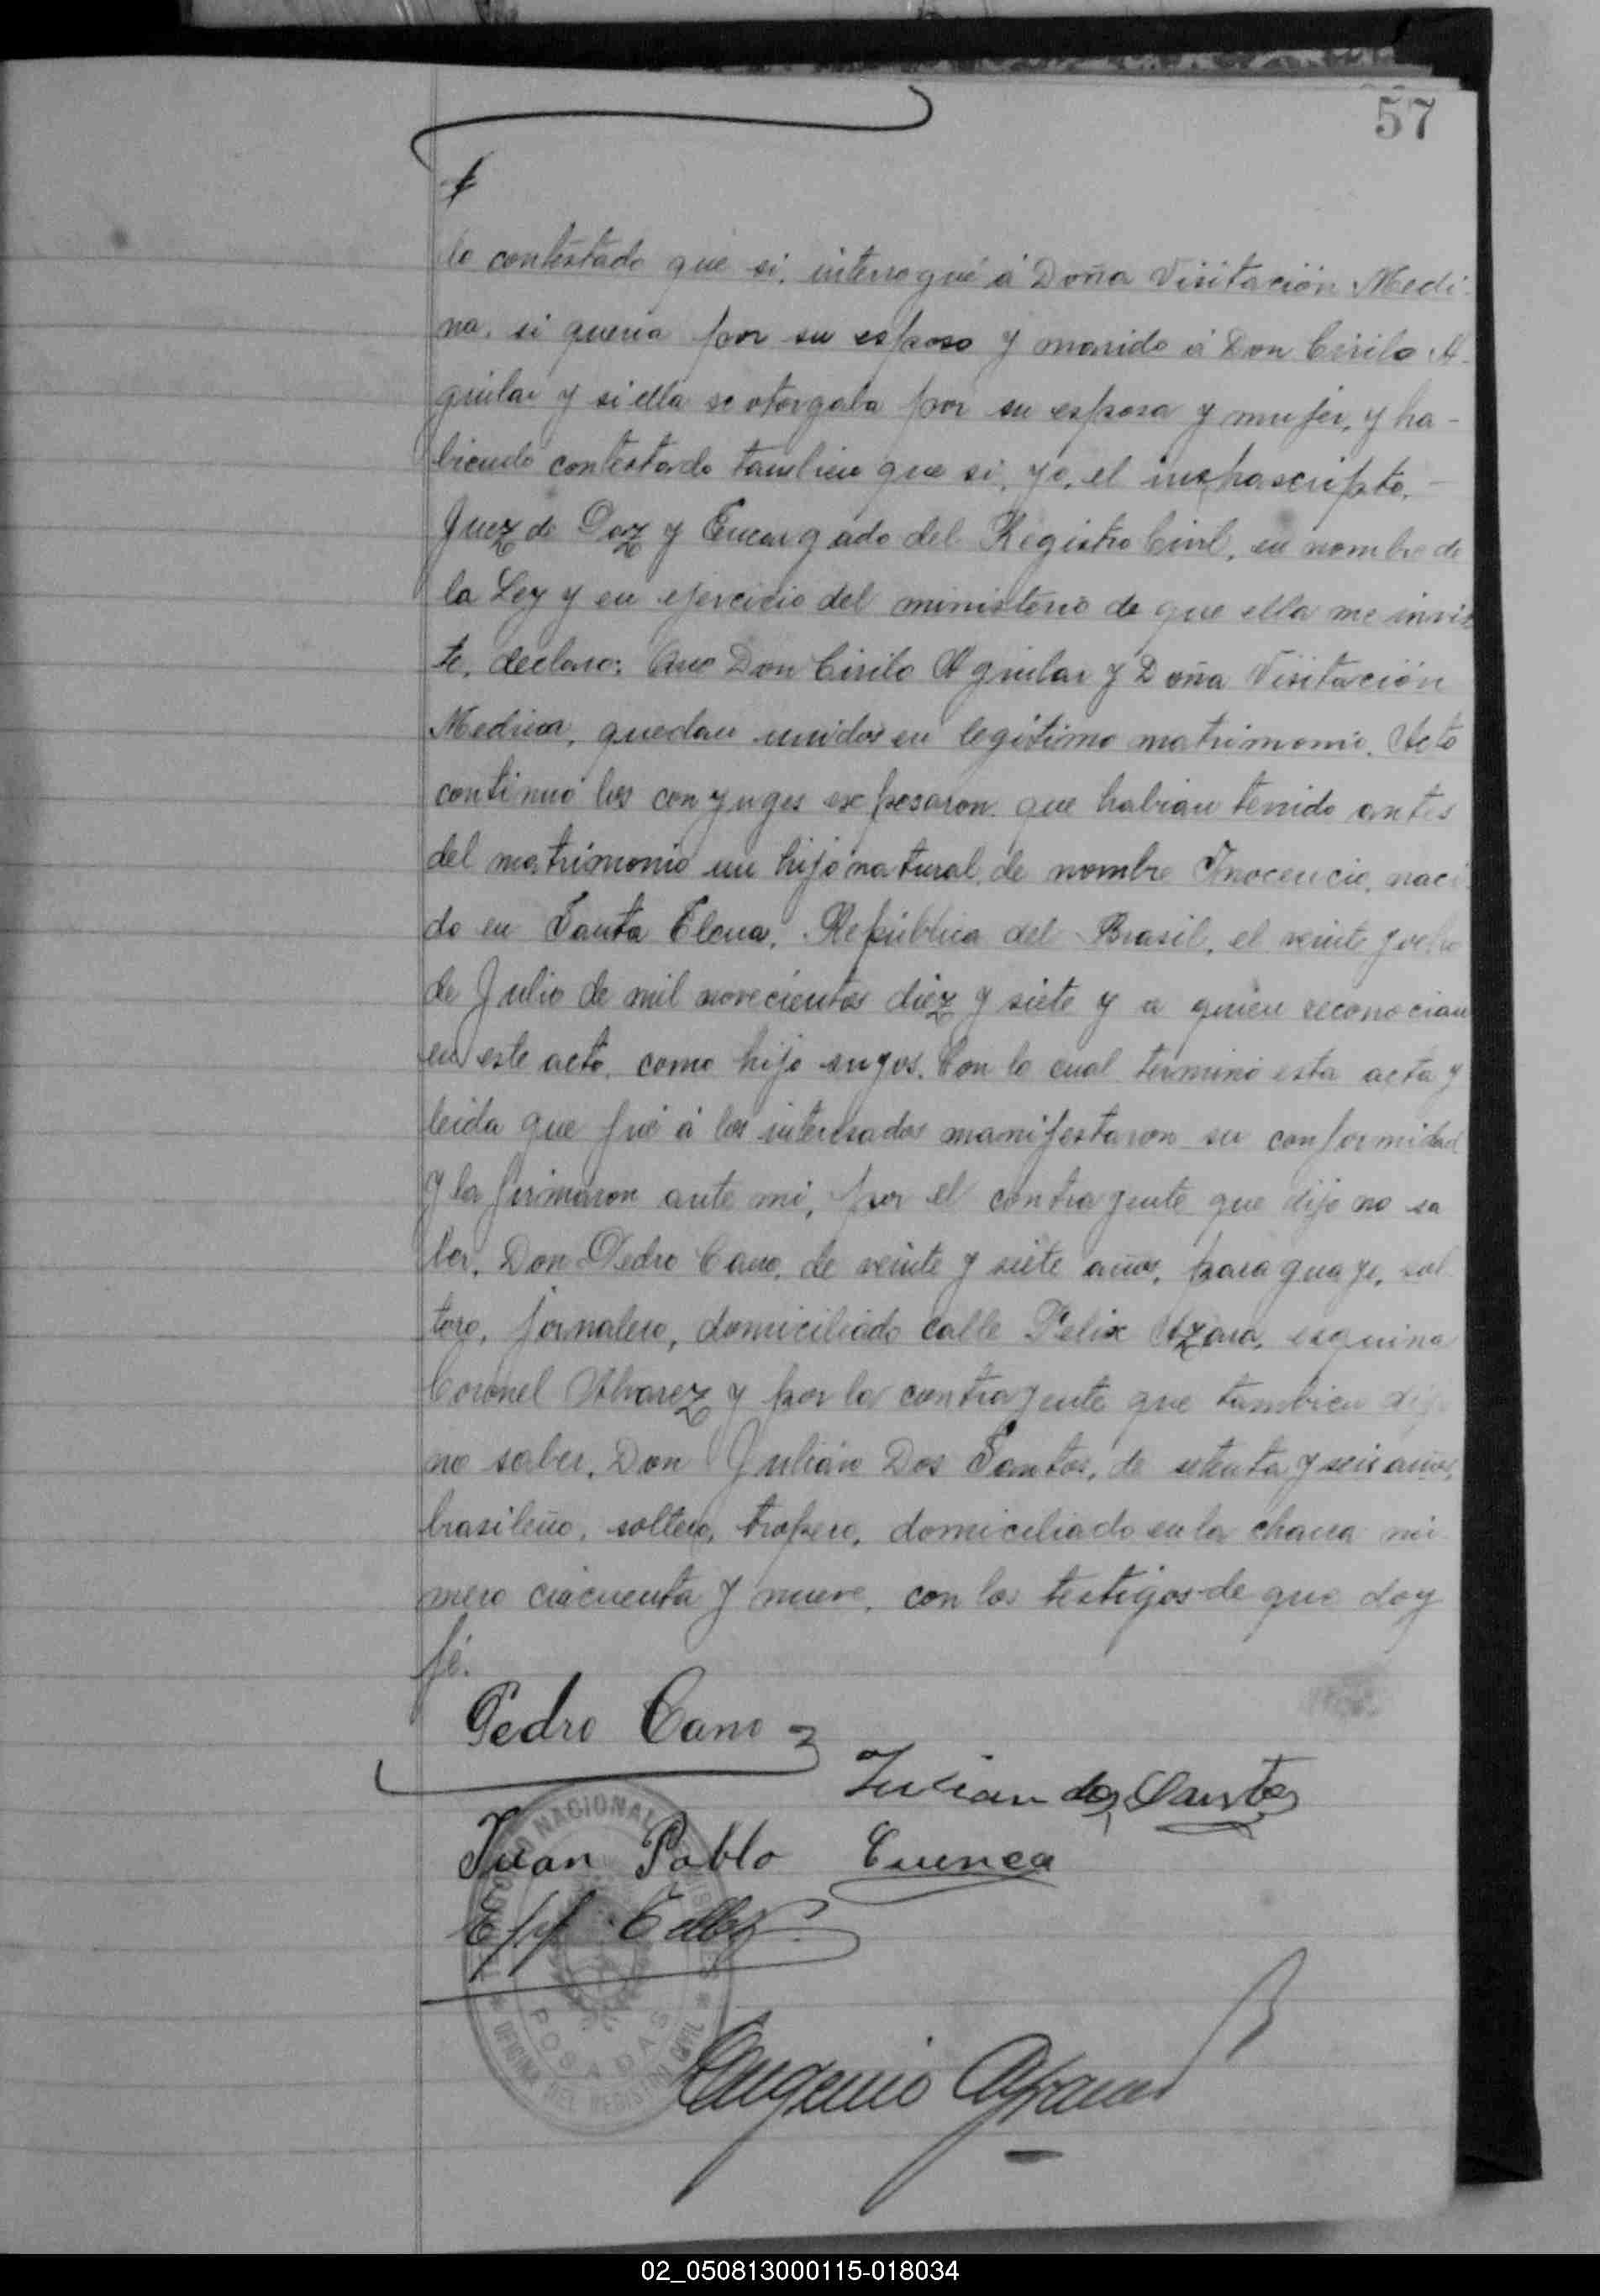 57
do contestado que si, interrogué á Doña Visitación Medi-
na, si queria por su esposo y marido á Don Cirilo A-
guilar y si ella se otorgaba por su esposa y mujer, y ha-
biendo contestado tambien que si, yo, el infrascripto,
Juez de Paz y Encargado del Registro Civil, en nombre de
la Ley y en ejercicio del ministerio de que ella me invis
te, declaro: Que Don Cirilo Aguilar y Doña Visitación
Medina, quedan unidos en legítimo matrimonio. Acto
continuó los conyuges expesaron que habian tenido antes
del matrimonio un hijo natural de nombre Inocencio, naci
do en Santa Elena, República del Brasil, el veinte y ocho
de Julio de mil novecientos diez y siete y a quien reconocian
en este acto, como hijo suyos. Con lo cual terminó esta acta y
leida que fué á los interesados manifestaron su conformidad
y la firmaron ante mi, por el contrayente que dijo no sa
ber, Don Pedro Cano, de veinte y siete años, paraguayo, sol
tero, jornalero, domiciliado calle Felix Azara, esquina
Coronel Alvarez y por la contrayente que tambien dijo
no saber, Don Julián Dos Santos, de setenta y seis años,
brasileño, soltero, tropero, domiciliado en la chacra nú
mero cincuenta y nueve, con los testigos de que doy
fé.
Pedro Cano
Julian dos Santos
Juan Pablo Cuenca
Tellez
Eugenio
NACIONAL
POSADAS
OFICINA DEL REGISTRO CIVIL
02_050813000115-018034